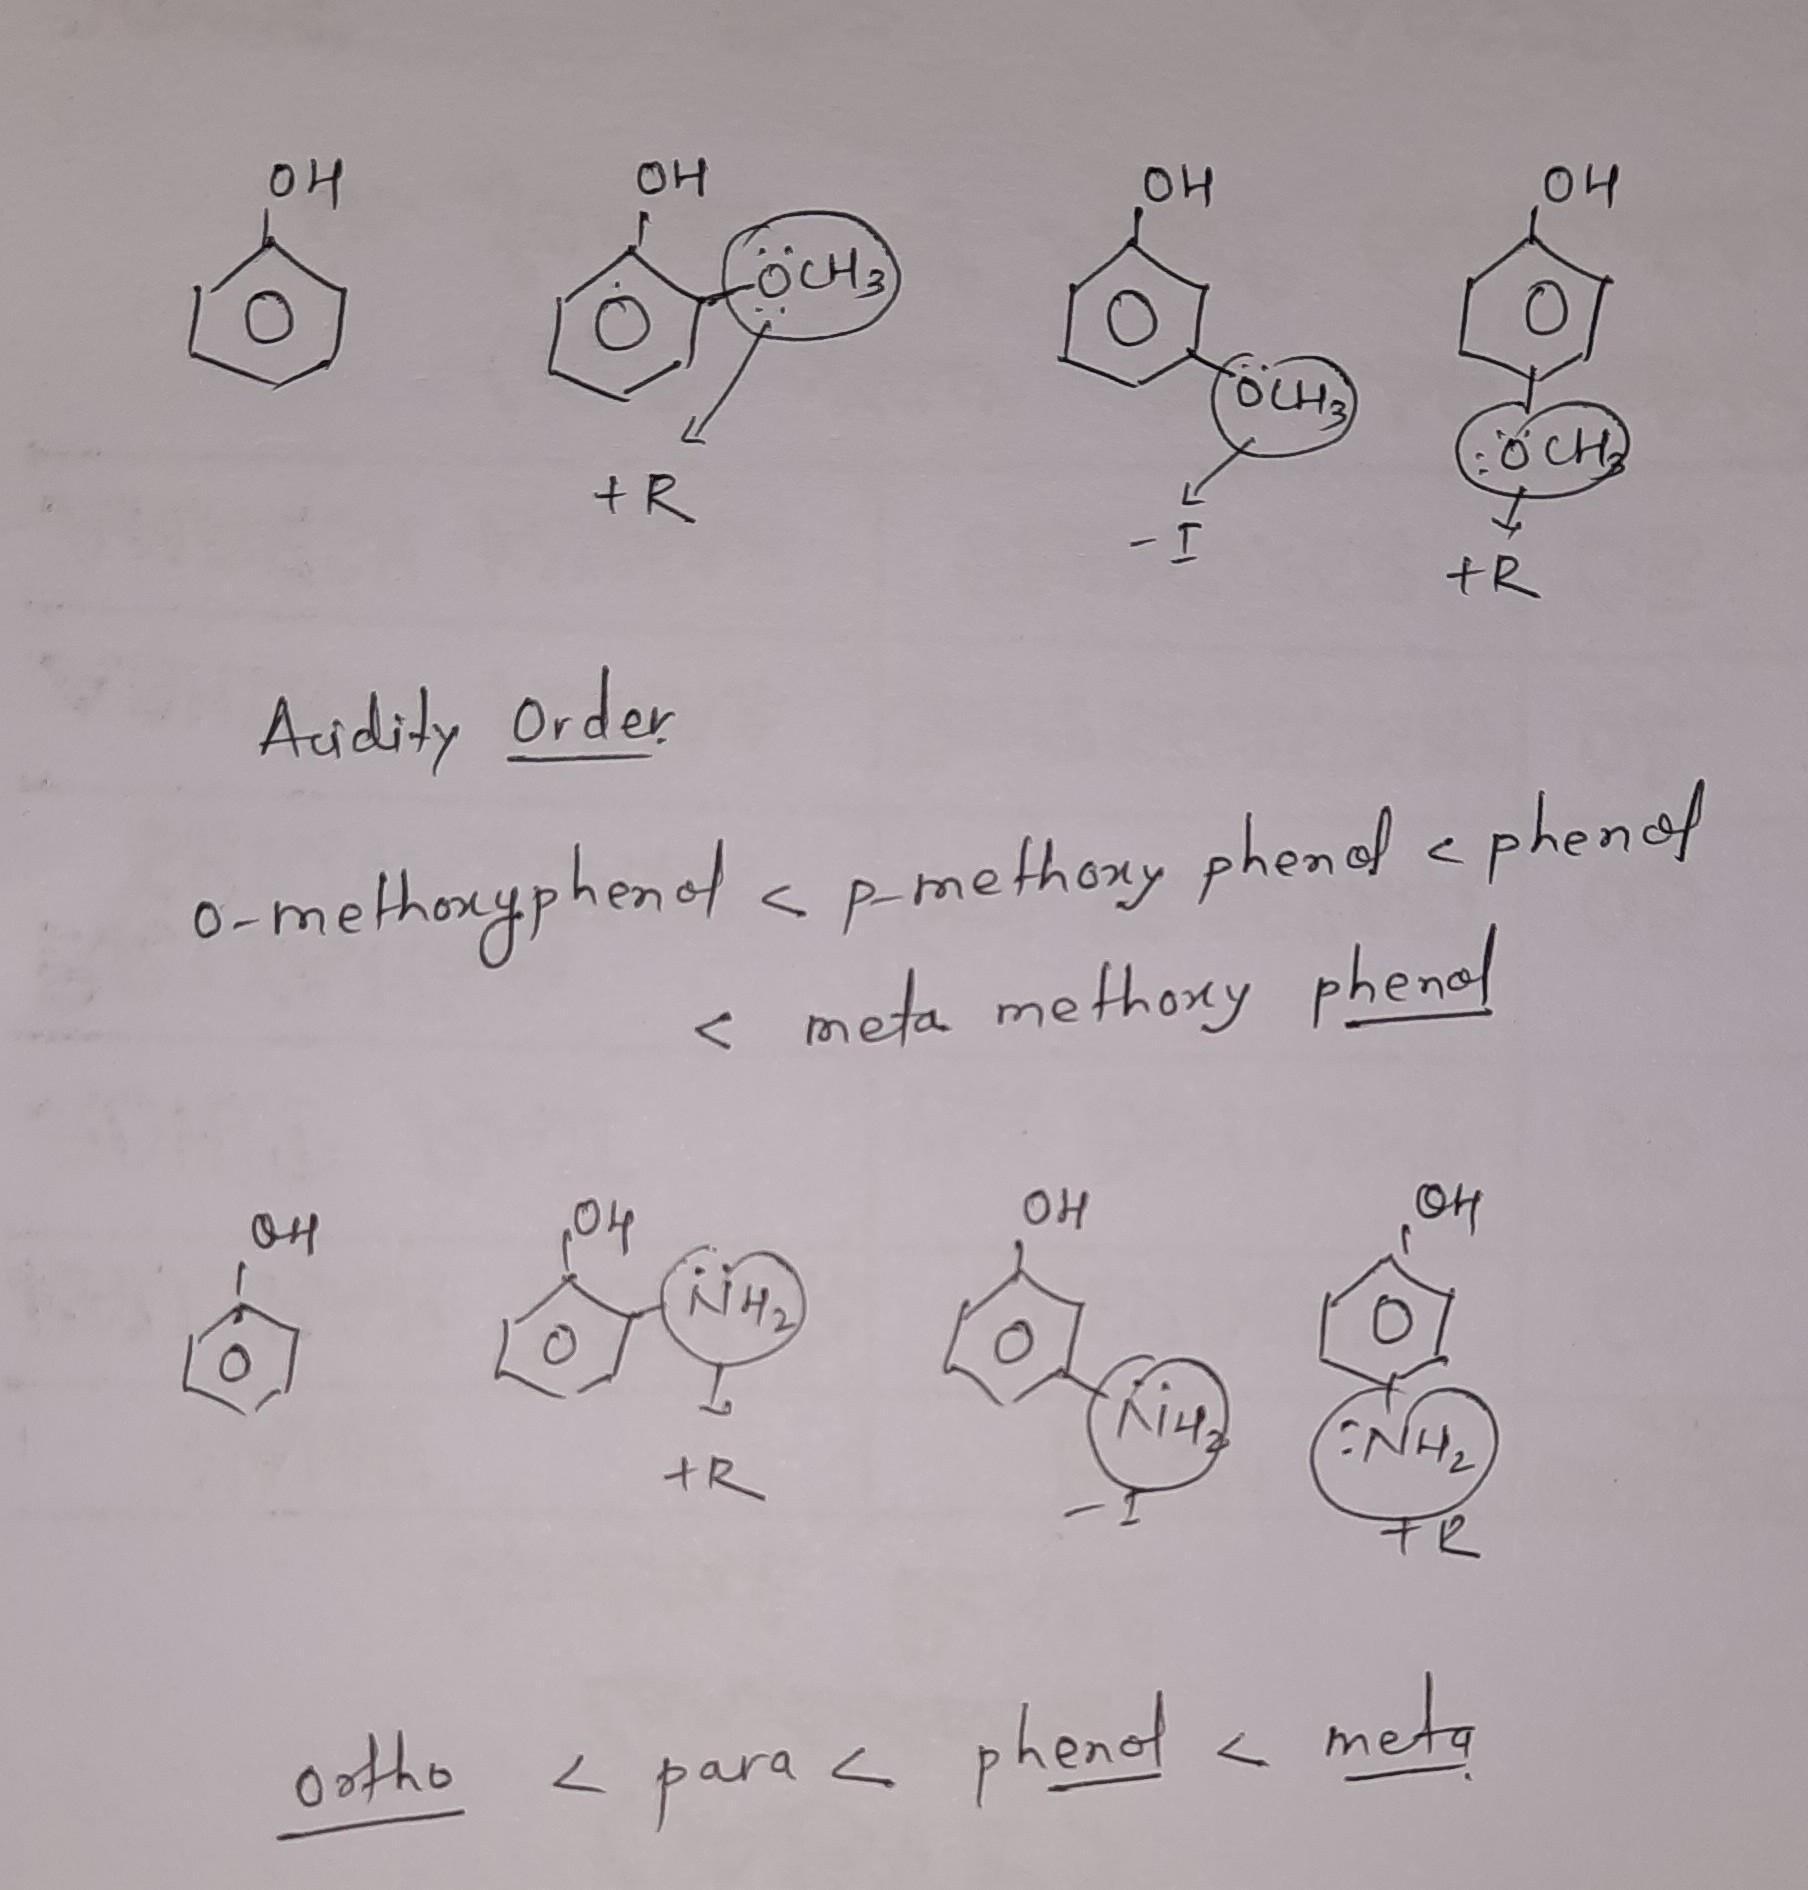 OH OH OH OH
ÖCH3
ÖCH3
:ÖCH3
+R
-I
+R
Acidity Order
o-methoxyphenol < p-methoxy phenol < phenol
< meta methoxy phenol
OH OH OH OH
N̈H2
N̈H2
:NH2
+R
-I
+R
ortho < para < phenol < meta